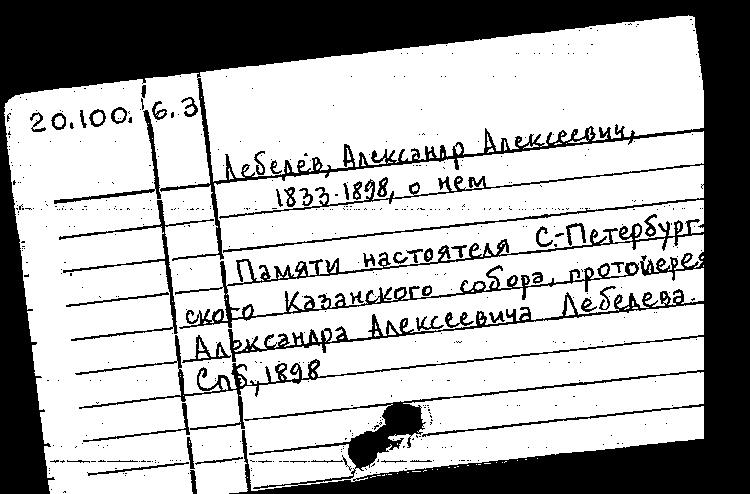 20.100.6.3
Лебедев, Александр Алексеевич,
1833-1898, о нем
Памяти настоятеля С.-Петербург-
ского Казанского собора, протоиерея
Александра Алексеевича Лебедева.
Спб, 1898